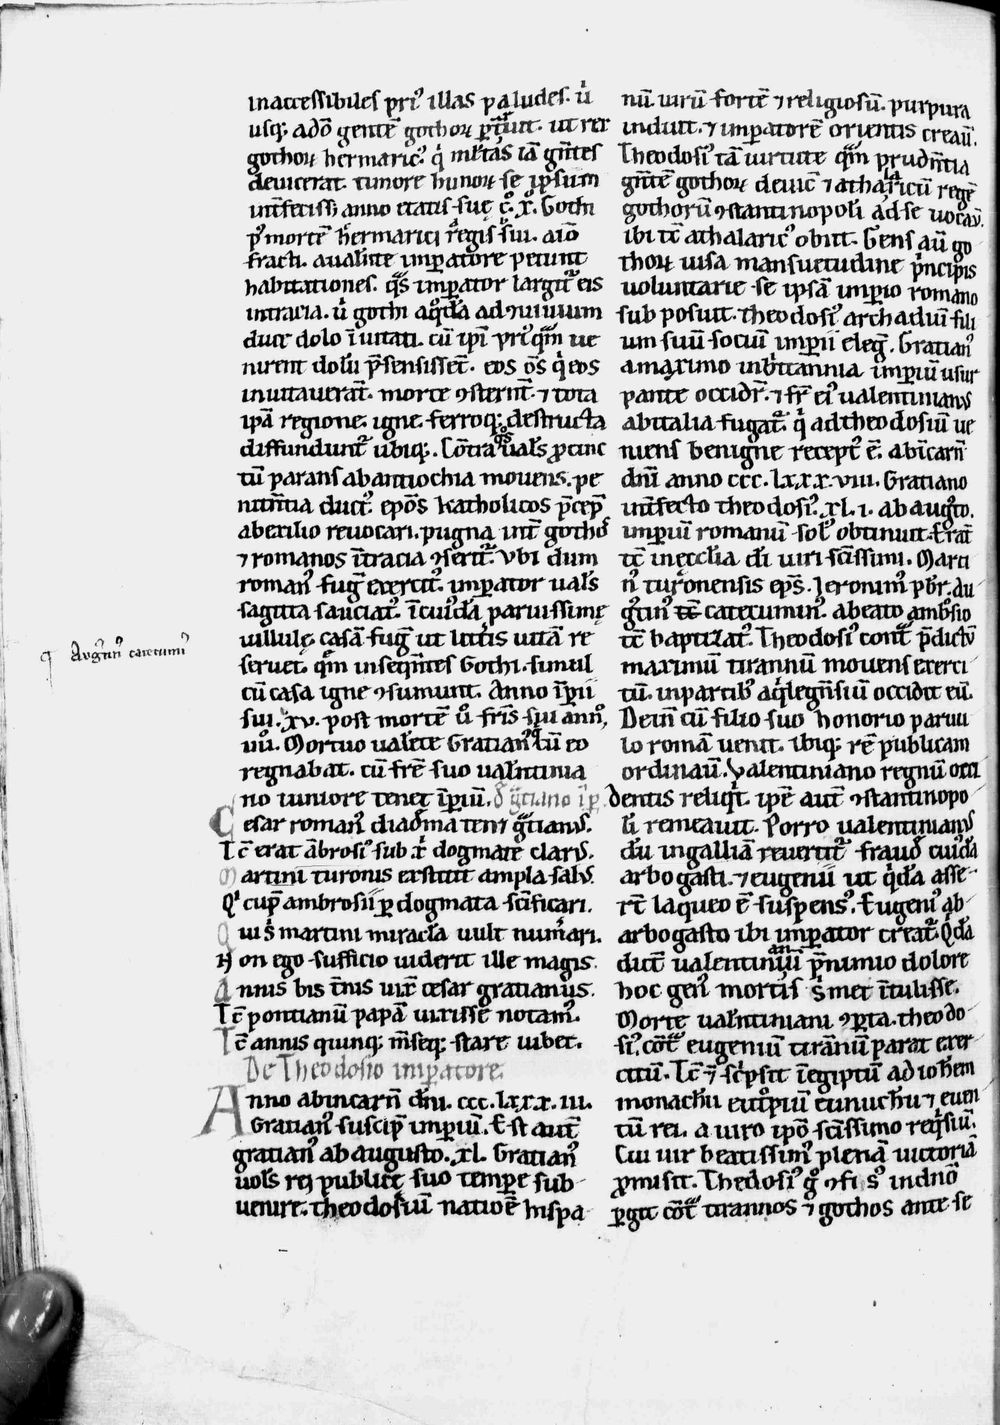 inaccessibiles pri᷒ illas paludes. ů
usq; adō gentē gothoꝝ ꝑt͛iūt. ut rex
gothoꝝ hermaric᷒. q̇ ml̄tas iā gn̄tes
deuicerat. timore hunoꝝ se ip̄sum
int̄fecissꝫ anno etatis suę .c̊.x̊. Gothi
p᷒ morteē h̄ermarici regis sui. aıō
fracti. aualēte imꝑatore petunt
habitationes. qͣs imꝑator largit᷑ eis
intracia. ů gothi aq̇da ad ꝯuiuium
duce dolo īuitati. cū ip̄i priͥqͣm ue
nirent dolū p̄sensissēt. eos ōs q̇ eos
inuitauerāt. morte ꝯsternt̄. ⁊ tota
ip̄a regione. igne ferroq; destructa
diffundunt᷑ ubiq;. Cōtra qͦs uals̄ ꝓcinc
tū parans abantiochia mouens. pe
nitn̄tia duct᷒. ep̄os katholicos p̄cep̄
abexilio reuocari. pugna int̄ gothos
⁊ romanos ītracia ꝯserit᷑. Vbi dum
roman᷒ fuḡ exercit᷒. imꝑator uals̄
sagitta sauciat᷒. īcuiᷤdā paruissime
uillulę casā fuḡ ut lūtis uitā re
seruet. qͣm inseqn̄tes Gothi. simul
cū casa igne ꝯsumunt. Anno īꝑii
sui. xv. post mortē ů fr̄is sui ann᷒,
uů. Mortuo ualēte Gratian᷒ q̇ cū eo
regnabat. cū fr̄e suo ualn̄tinia
no iuniore tenet īꝑiū. d̄ gͣtiano īꝑ.
Cesar roman᷒ diadēma teni gͣtianus.
Tc̄ erat ābrosi᷒ sub x̄ dogmate clarus.
Martini turonis exstitit ampla salus.
Qͥ cup̄ ambrosii ꝑ dogmata scīficari.
Quiᷤ martini miracla uult num̄ari.
Non ego sufficio uiderit ille magis.
Annis bis t̄nis uix cesar gratianus.
Tc̄ pontianū papā uixisse notam᷒.
Tc̄ annis quinq; m̄seq; stare iubet.
De Theodosio imꝑatore.
Anno abincarn̄ dn̄i. ccc.lxxx.iii.
Gratian᷒ suscip̄ imꝑiū. Est autē
gratian᷒ ab augusto. xl. Gratian᷒
uols̄ rei publice suo tempe sub
uenire. theodosiū natioē hispa
nū. uirū fortē ⁊ religiosū. purpura
induit. ⁊ imꝑatorē orientis creauͭ.
Theodosi᷒ tā uirtute qͣm prudn̄tia
gn̄tē gothoꝝ deuic̄ ⁊ athalaricū regē
gothorū ꝯstantinopoli ad se uocauͭ.
ibi tc̄ athalaric᷒ obiit. Gens aū go
thoꝝ uisa mansuetudine p̄ncipis
uoluntarie se ipsā imꝑio romano
sub posuit. theodosi᷒ archadiū fili
um suū sociū imꝑii eleḡ. Gratian᷒
amaximo inbritannia imꝑiū usur
pante occidit᷑. ⁊ fr̄ ei᷒ ualentinianus
abitalia fugat᷑. q̇ adtheodosiū ue
niens benigne recept᷒ ē. abīcarn̄
dn̄i anno ccc.lxxx.viii. Gratiano
int̄fecto theodosi᷒. xl.i. ab augͭo.
imꝑiū romanū sol᷒ obtinuit. Erāt
tc̄ inęcclīa dī uiri scīssimi. Marti
n᷒ turonensis ep̄s. Jeronim᷒ pbr̄. au
gͭin᷒ tc̄ catecumin᷒. abeato ambrosio
tc̄ baptizat᷒. Theodosi᷒ contͣ p̄dictū
maximū tirannū mouens exerci
tū. inpartib᷒ aq̇legn̄siū occidit eū.
Dein̄ cū filio suo honorio paruu
lo romā uenit. ibiq; rē publicam
ordinauͭ. Valentiniano regnū occi
dentis reliqͭ. ipē autē ꝯstantinopo
lī remeauit. Porro ualentinianus
dū ingalliā reuertit᷑ fraudē cuiᷤdā
arbogasti. ⁊ eugenii ut q̇da asse
rt̄ laqueo ē suspens᷒. Eugeni᷒ ab
arbogasto ibi imꝑator creat᷑. Q̇dā
dūt ualentinianū p̄nimio dolore
hoc gen᷒ mortis s᷒met ītulisse.
Morte ualn̄tiniani ꝯꝑta. theodo
si᷒. cōtͣ eugeniū tirānū parat exer
citū. Tc̄ ⁊ sc̄psit īegiptū ad iohem
monachū eutͦpiū eunuchū ⁊ euen
tū rei. a uiro ipō scīssimo reqͥsiuͭ.
Cui uir beatissim᷒ plenā uictoriā
ꝓmisit. Thedosi᷒ gͦ ꝯfisᷤ indnō
ꝑgit cōtͣ tirannos ⁊ gothos ante se
¶ Augᷤtin᷒ catecumi᷒